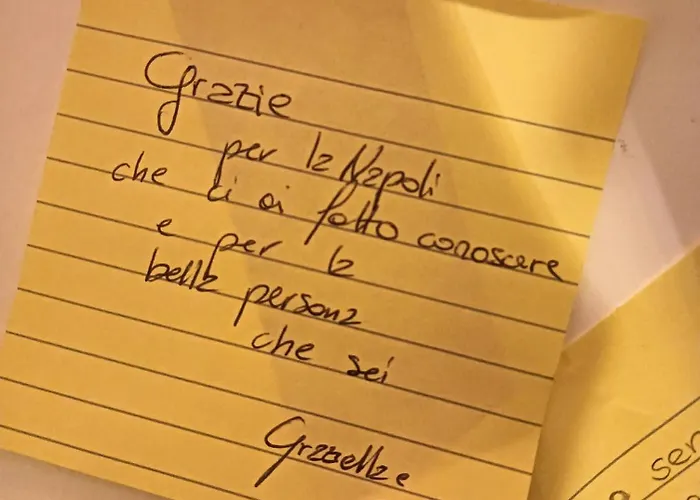 Grazie
per la Napoli
che ci ai fatto conoscere
e per la
bella persona
che sei
Graziella e
ser